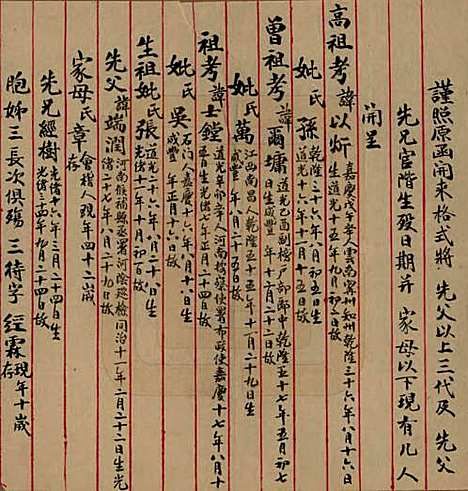 謹照原函開来格式將 先父以上三代及 先父
先兄官階生歿日期并 家母以下現有几人
開呈
高祖考諱以炘 嘉慶戊午舉人雲南賓州知州乾隆三十六年八月十六日
生道光十五年九月初二日故
妣氏孫 乾隆三十六年八月初五日生
道光十六年十月十五日故
曾祖考諱爾墉 道光乙酉副榜戶部郎中乾隆五十七年五月初七
日生咸豐 年十二月二十二日故
妣氏萬 江西南昌人乾隆五十五年 月二十九日生
咸豐 年八月二十五日故
祖考諱士鏜 道光辛卯舉人河南糧鹽使署布政使嘉慶十七年八月十
五日生光緒七年正月二十四日故
妣氏吳 石門人嘉慶十六年八月十八日生
咸豐 年正月十六日故
生祖妣氏張 道光二十六年八月二十八日生
光緒二十一年十月初二日故
先父諱端潤 河南候補縣丞署河陰巡檢同治十一年二月二十二日生光
緒二十七年八月二十九日故
家母氏章 會稽人現年四十二歲
存
先兄經樹 光緒二十六年三月二十四日生
光緒三十四年九月二十四日故
胞姊三長次俱殤三待字 經霖 現年十歲
存